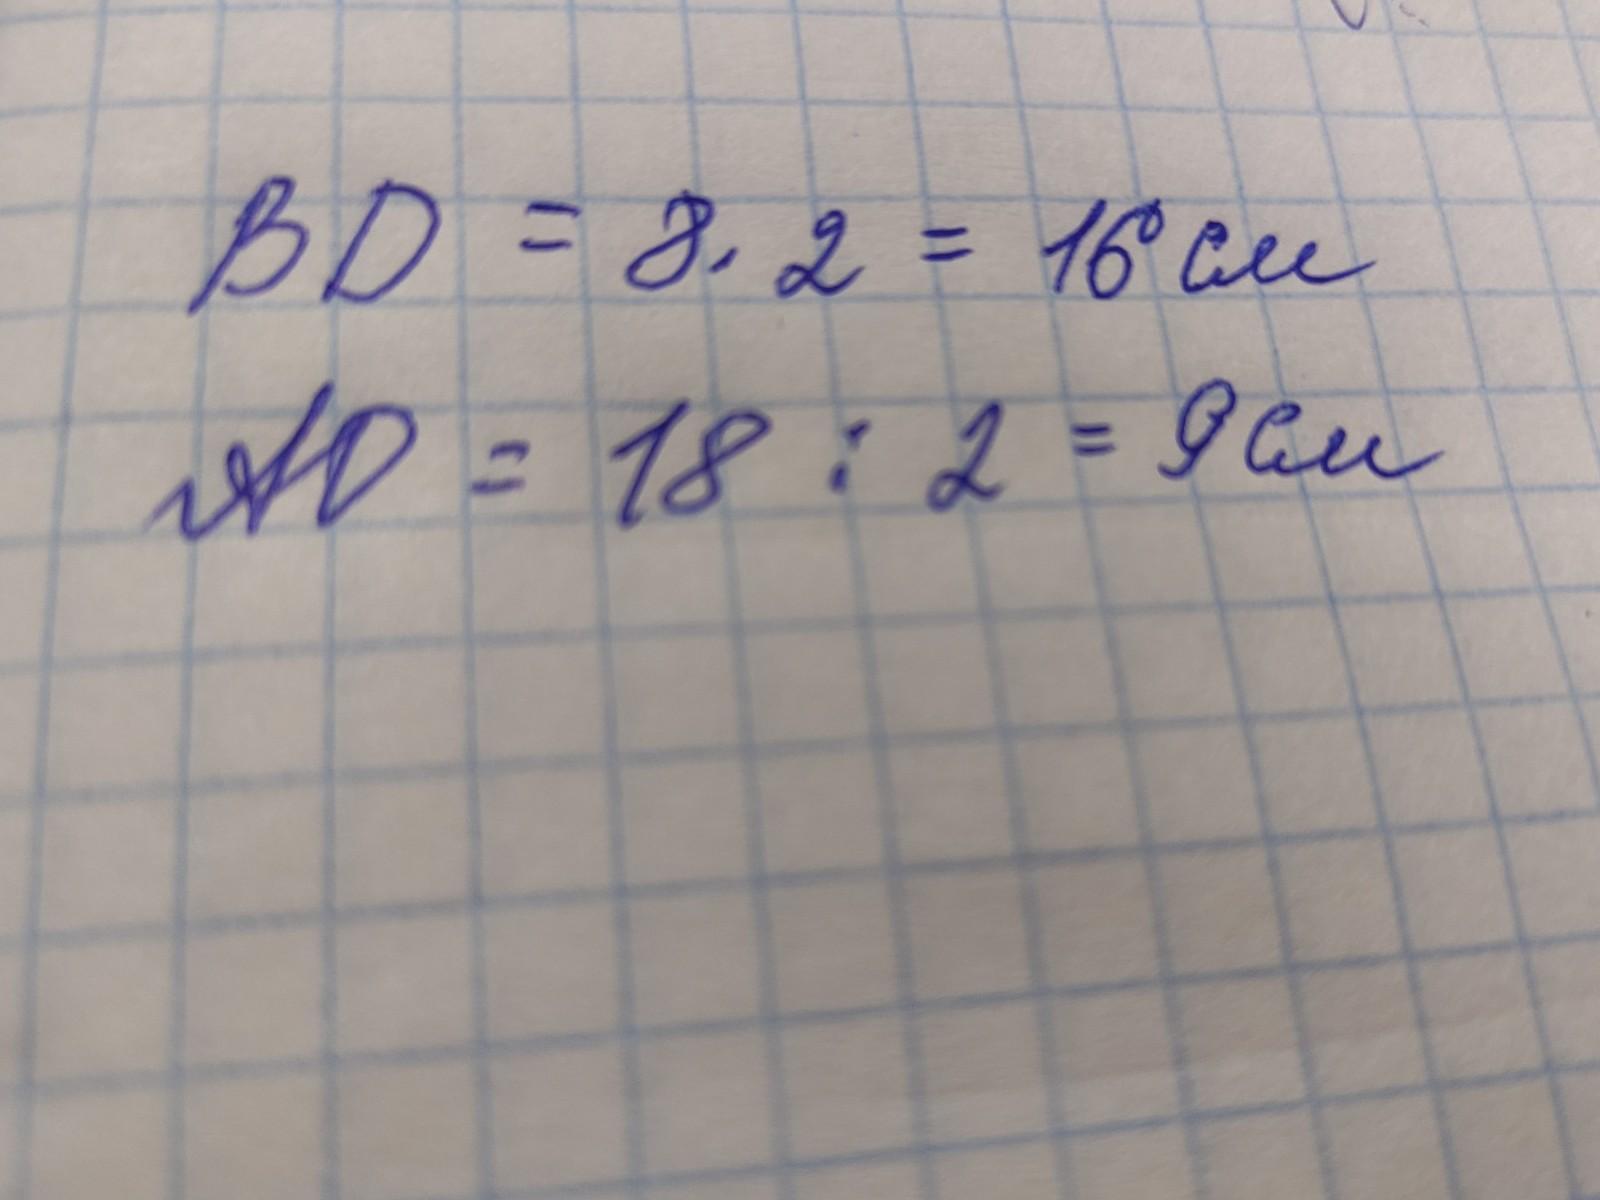 BD = 8. 2 = 16 см
AD = 18 : 2 = 9 см